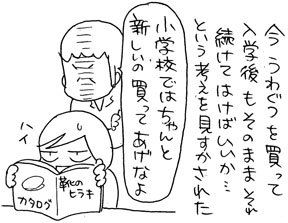 今 うわぐつを買って
入学後もそのままそれ
続けてはけばいいか…
という考えを見すかされた
小学校ではちゃんと
新しいの買ってあげなよ
ハイ
靴のヒラキ
カタログ